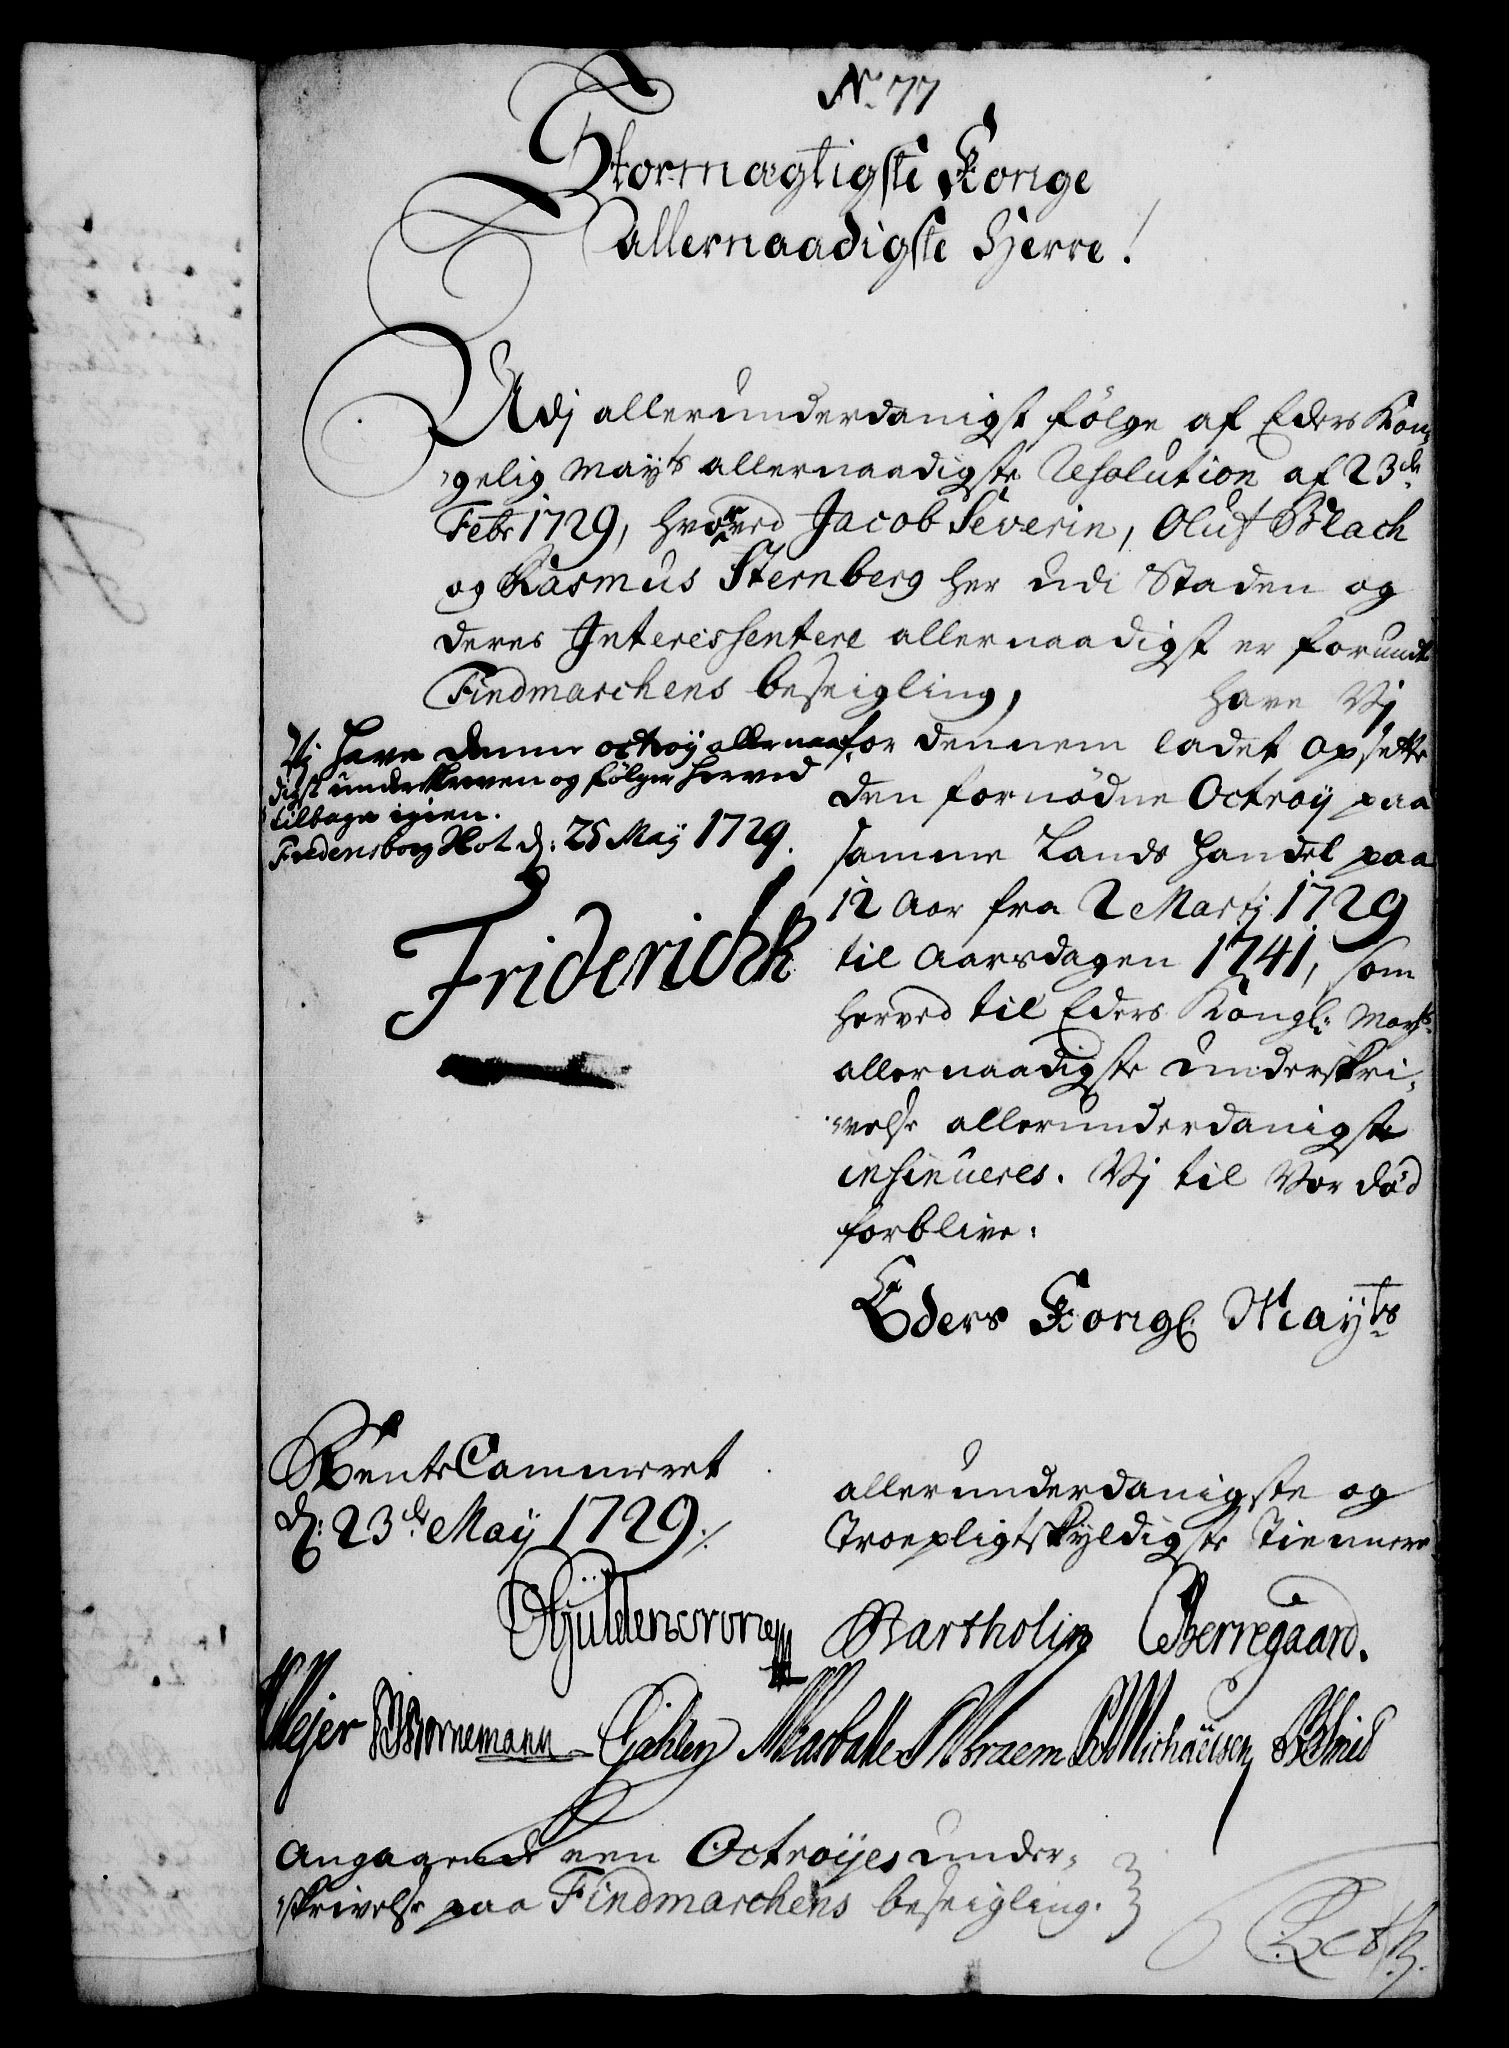 No 77
Stormægtigste Konge
allernaadigste Herre!
Udj allerunderdanigst følge af Eders Kon-
gelig Mayts allernaadigste Resolution af 23de
Febr 1729, hvorved Jacob Severin, Oluf Blach
og Rasmus Sternberg her udi Staden og
deres Interessentere allernaadigst er forundt
Findmarchens beseigling, have Vj
for dennem ladet opsette
den fornødne Octroy paa
samme Lands Handel paa
12 Aar fra 2 Martj 1729
til Aarsdagen 1741, som
herved til Eders Kongl: Mayts
allernaadigste underskri-
velse allerunderdanigst
insinueres. Vj til Vor død
forblive.
Vj have denne octroy allernaa-
digst underskreven og følger herved
tilbage igien.
Fredensborg Slot d: 25 May 1729.
Friderich R
Eders Kongl. Mayts
RenteCammeret
d: 23de May 1729.
allerunderdanigste og
Troepligtskyldigste Tienere
Gÿldencrone Bartholin Berregaard.
Mejer Bornemann Braem Michaelsen
Angaaende een Octroyes under-
skrivelse paa Findmarchens beseigling.